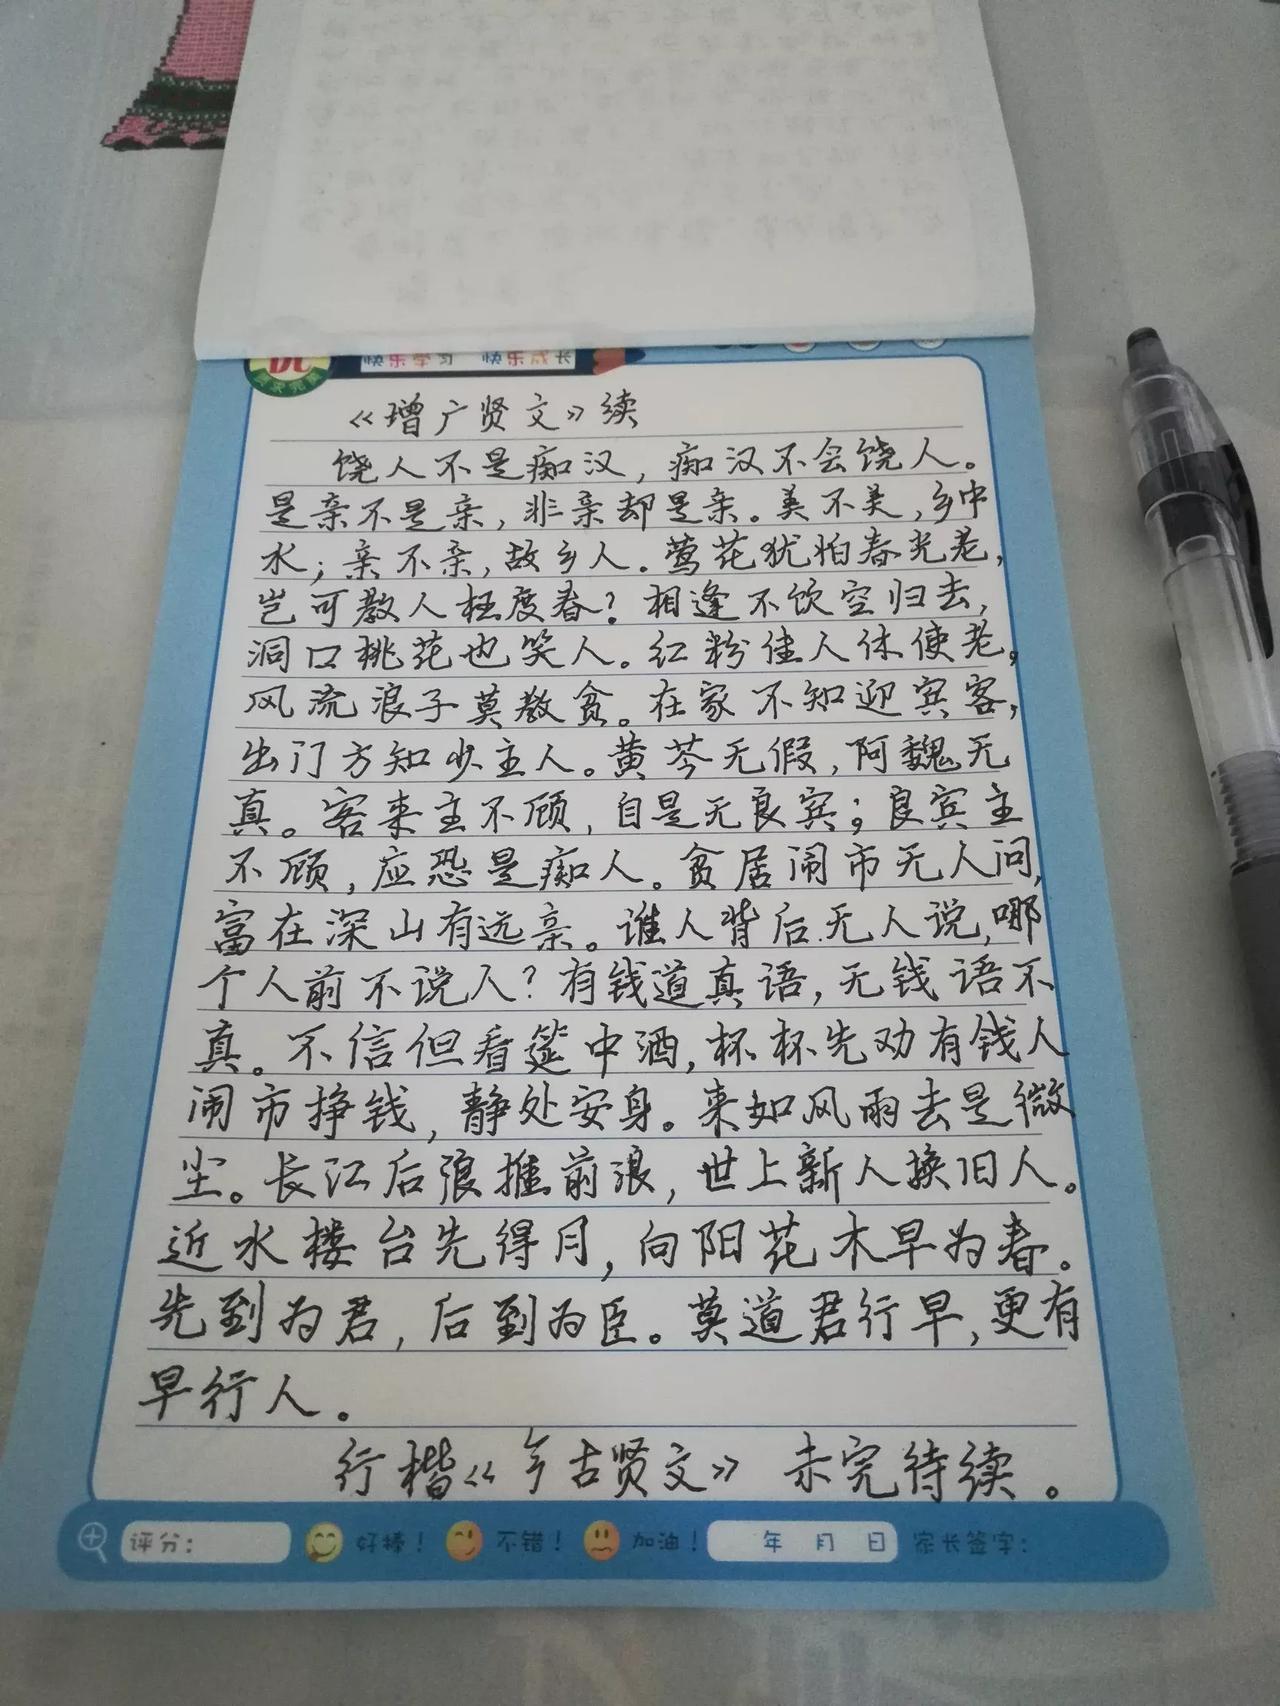 快乐学习 快乐成长
《增广贤文》续
饶人不是痴汉，痴汉不会饶人。
是亲不是亲，非亲却是亲。美不美，乡中
水；亲不亲，故乡人。莺花犹怕春光老，
岂可教人枉度春？相逢不饮空归去，
洞口桃花也笑人。红粉佳人休使老，
风流浪子莫教贫。在家不知迎宾客，
出门方知少主人。黄芩无假，阿魏无
真。客来主不顾，自是无良宾；良宾主
不顾，应恐是痴人。贫居闹市无人问，
富在深山有远亲。谁人背后无人说，哪
个人前不说人？有钱道真语，无钱语不
真。不信但看筵中酒，杯杯先劝有钱人
闹市挣钱，静处安身。来如风雨去是微
尘。长江后浪推前浪，世上新人换旧人。
近水楼台先得月，向阳花木早为春。
先到为君，后到为臣。莫道君行早，更有
早行人。
行楷《今古贤文》 未完待续。
评分： 好棒！ 不错！ 加油！ 年 月 日 家长签字：